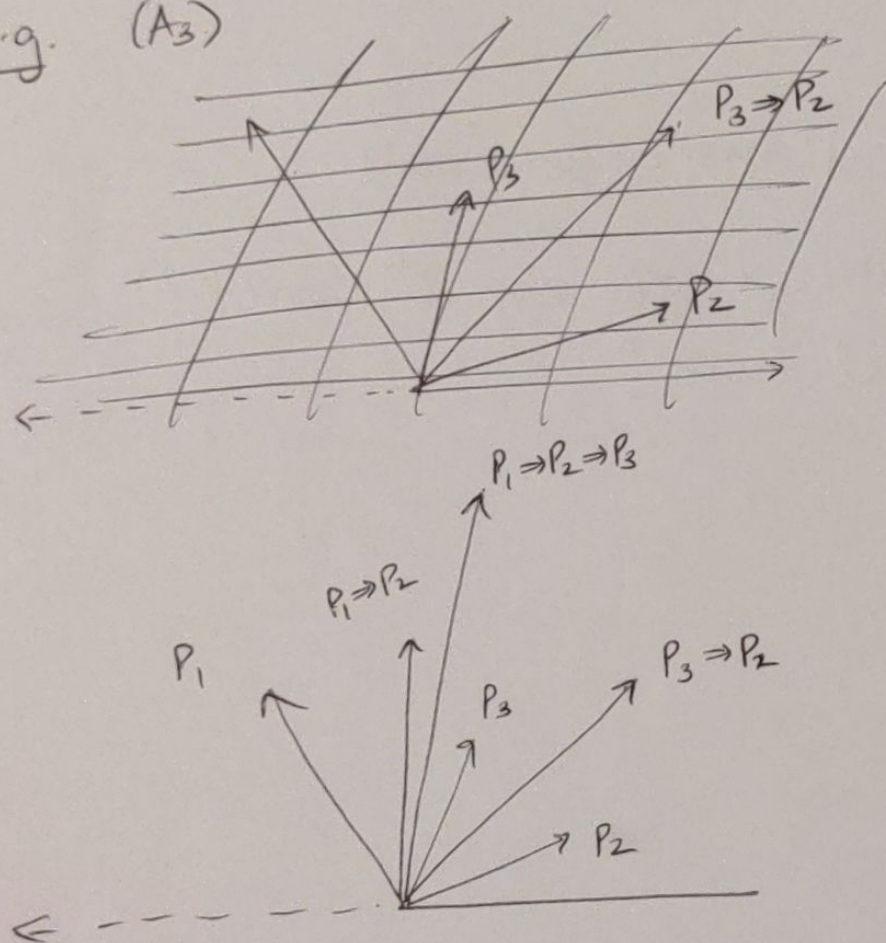 e.g. (A₃)
P₃ ⇒ P₂
P₃
P₂
P₁ ⇒ P₂ ⇒ P₃
P₁ ⇒ P₂
P₁
P₃ ⇒ P₂
P₃
P₂